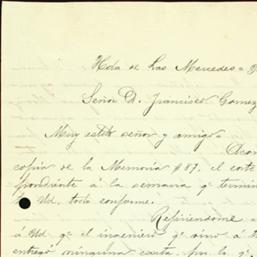 Hda de Las Mercedes
Señor D. Francisco Gomez
Muy estdo señor y amigo.
Acom
copia de la Memoria #87. el corte
pondiente á la semana qe termin
Ud. todo conforme.
Refiriendome
á Ud. qe el ingeniero qe vino á
entregó ninguna carta, por lo qe